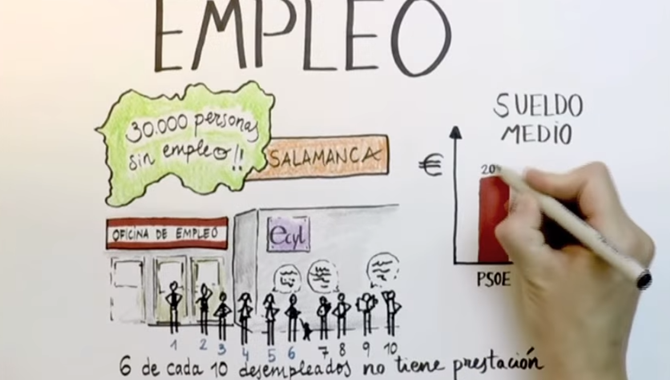 EMPLEO
30.000 personas
sin empleo!!
SALAMANCA
SUELDO
MEDIO
€
20
PSOE
OFICINA DE EMPLEO
ecyl
1 2 3 4 5 6 7 8 9 10
6 de cada 10 desempleados no tiene prestación